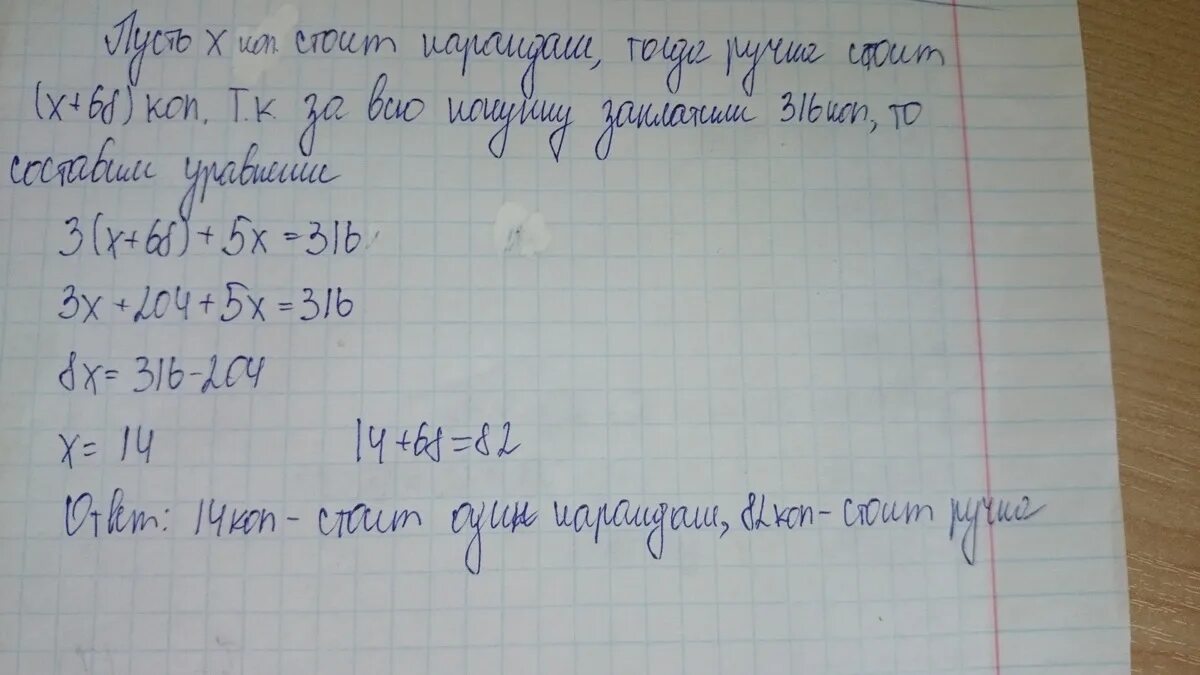 Пусть x коп. стоит карандаш, тогда ручка стоит
(x+68) коп. Т.к. за всю покупку заплатили 316 коп, то
составим уравнение
3(x+68)+5x=316
3x+204+5x=316
8x=316-204
x=14 14+68=82
Ответ: 14 коп - стоит один карандаш, 82 коп - стоит ручка